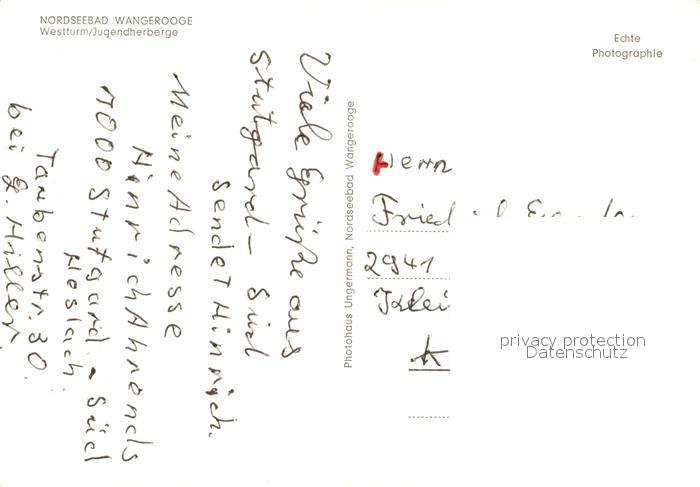 NORDSEEBAD WANGEROOGE
Westturm/Jugendherberge
Echte
Photographie
Viele Grüße aus
Stutgard - Süd
sendet Hinrich.
Meine Adresse
Hinrich Ahrends
7000 Stutgard - Süd
Heslach.
Taubenstr. 30
bei G. Hiller.
Photohaus Ungermann, Nordseebad Wangerooge
Herrn
Fried
2941
Klei
privacy protection
Datenschutz